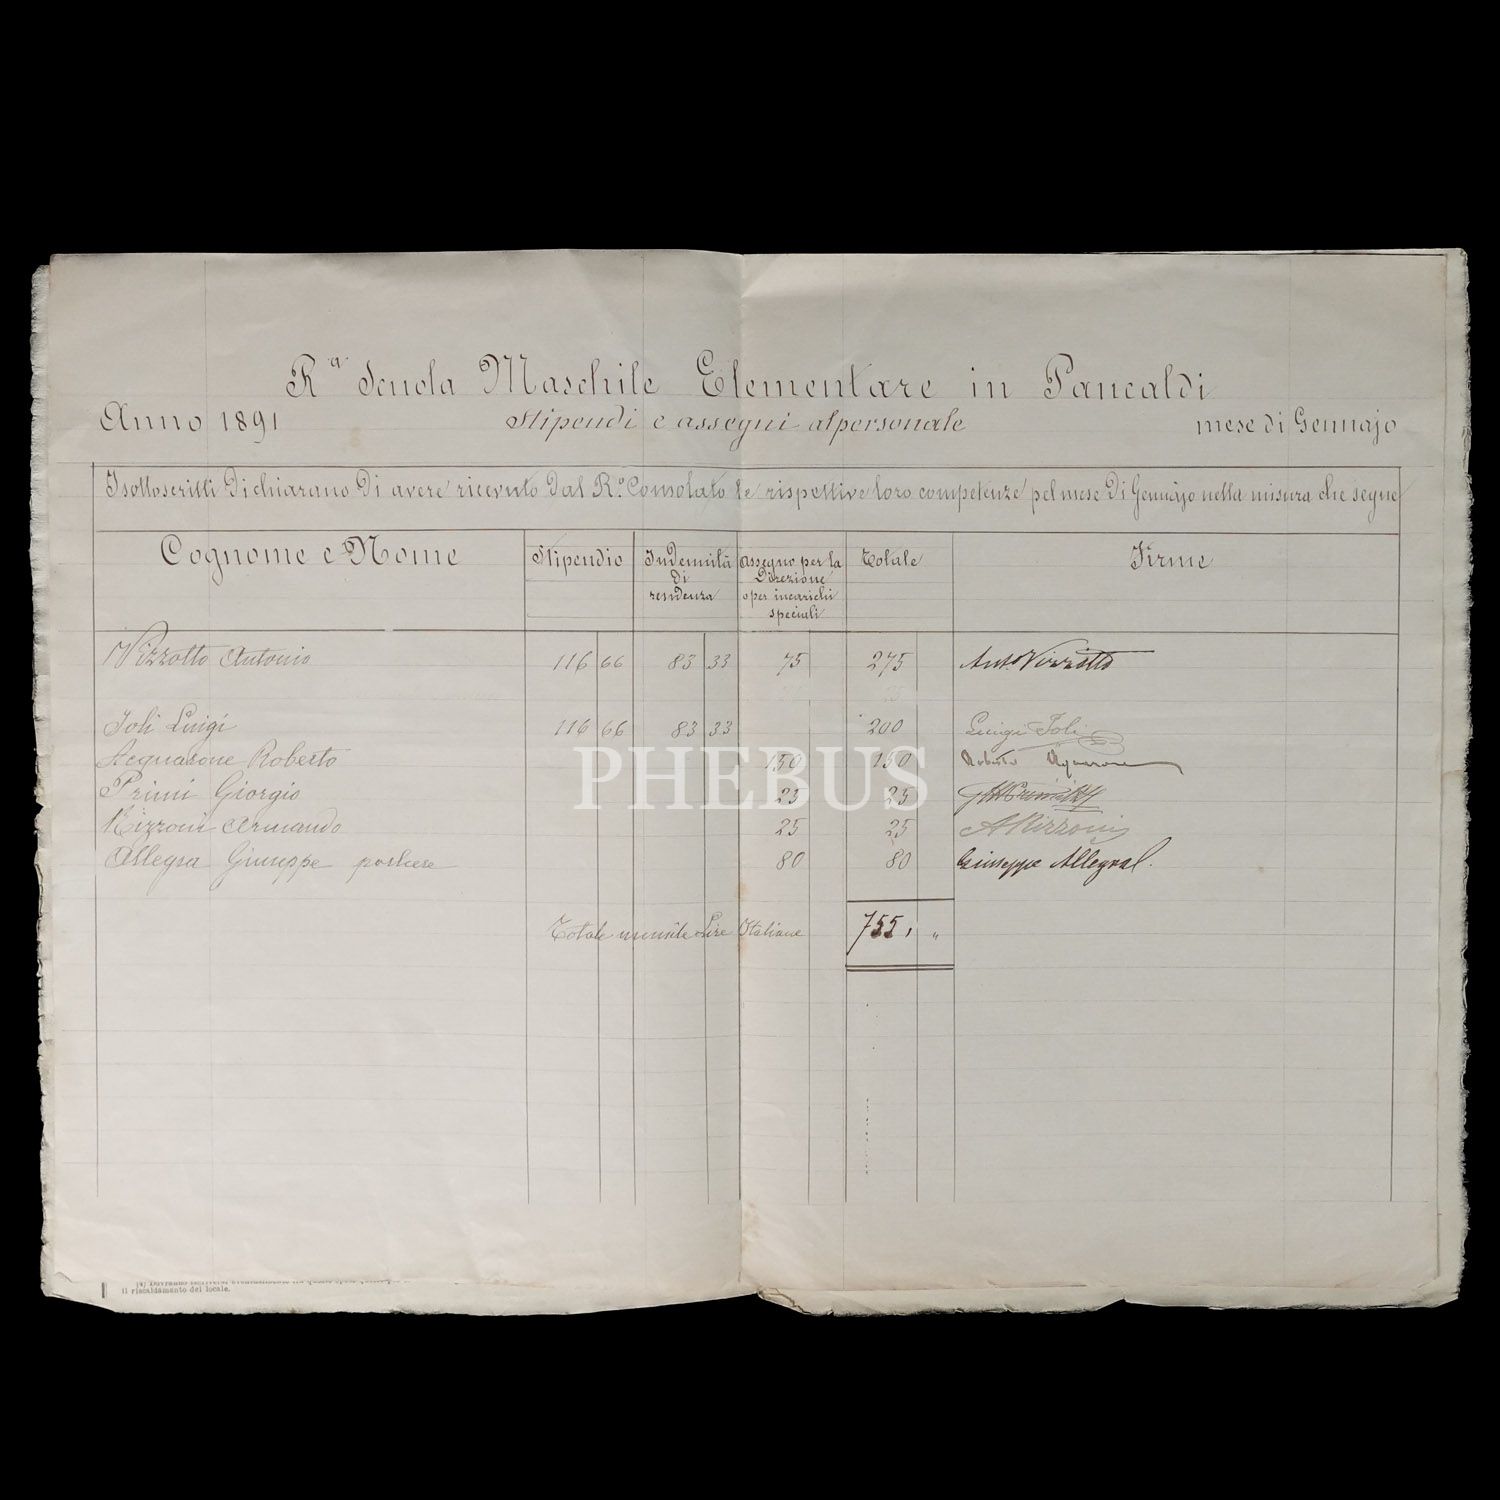 Rª Scuola Maschile Elementare in Pancaldi
Anno 1891 Stipendi e assegni al personale mese di Gennajo
I sottoscritti Dichiarano Di avere ricevuto Dal R.º Consolato le rispettive loro competenze pel mese Di Gennajo nella misura che segue
Cognome e Nome Stipendio Indennità di residenza Assegno per la Direzione o per incarichi speciali Totale Firme
Vizzotto Antonio 116 66 83 33 75 275 Antº Vizzotto
Joli Luigi 116 66 83 33 200 Luigi Joli
Acquarone Roberto 150 150 Roberto Aquarone
Primi Giorgio 25 25
Rizzoni Armando 25 25 A Rizzoni
Allegra Giuseppe portiere 80 80 Giuseppe Allegra
Totale mensile Lire Italiane 755, "
PHEBUS
il riscaldamento del locale.